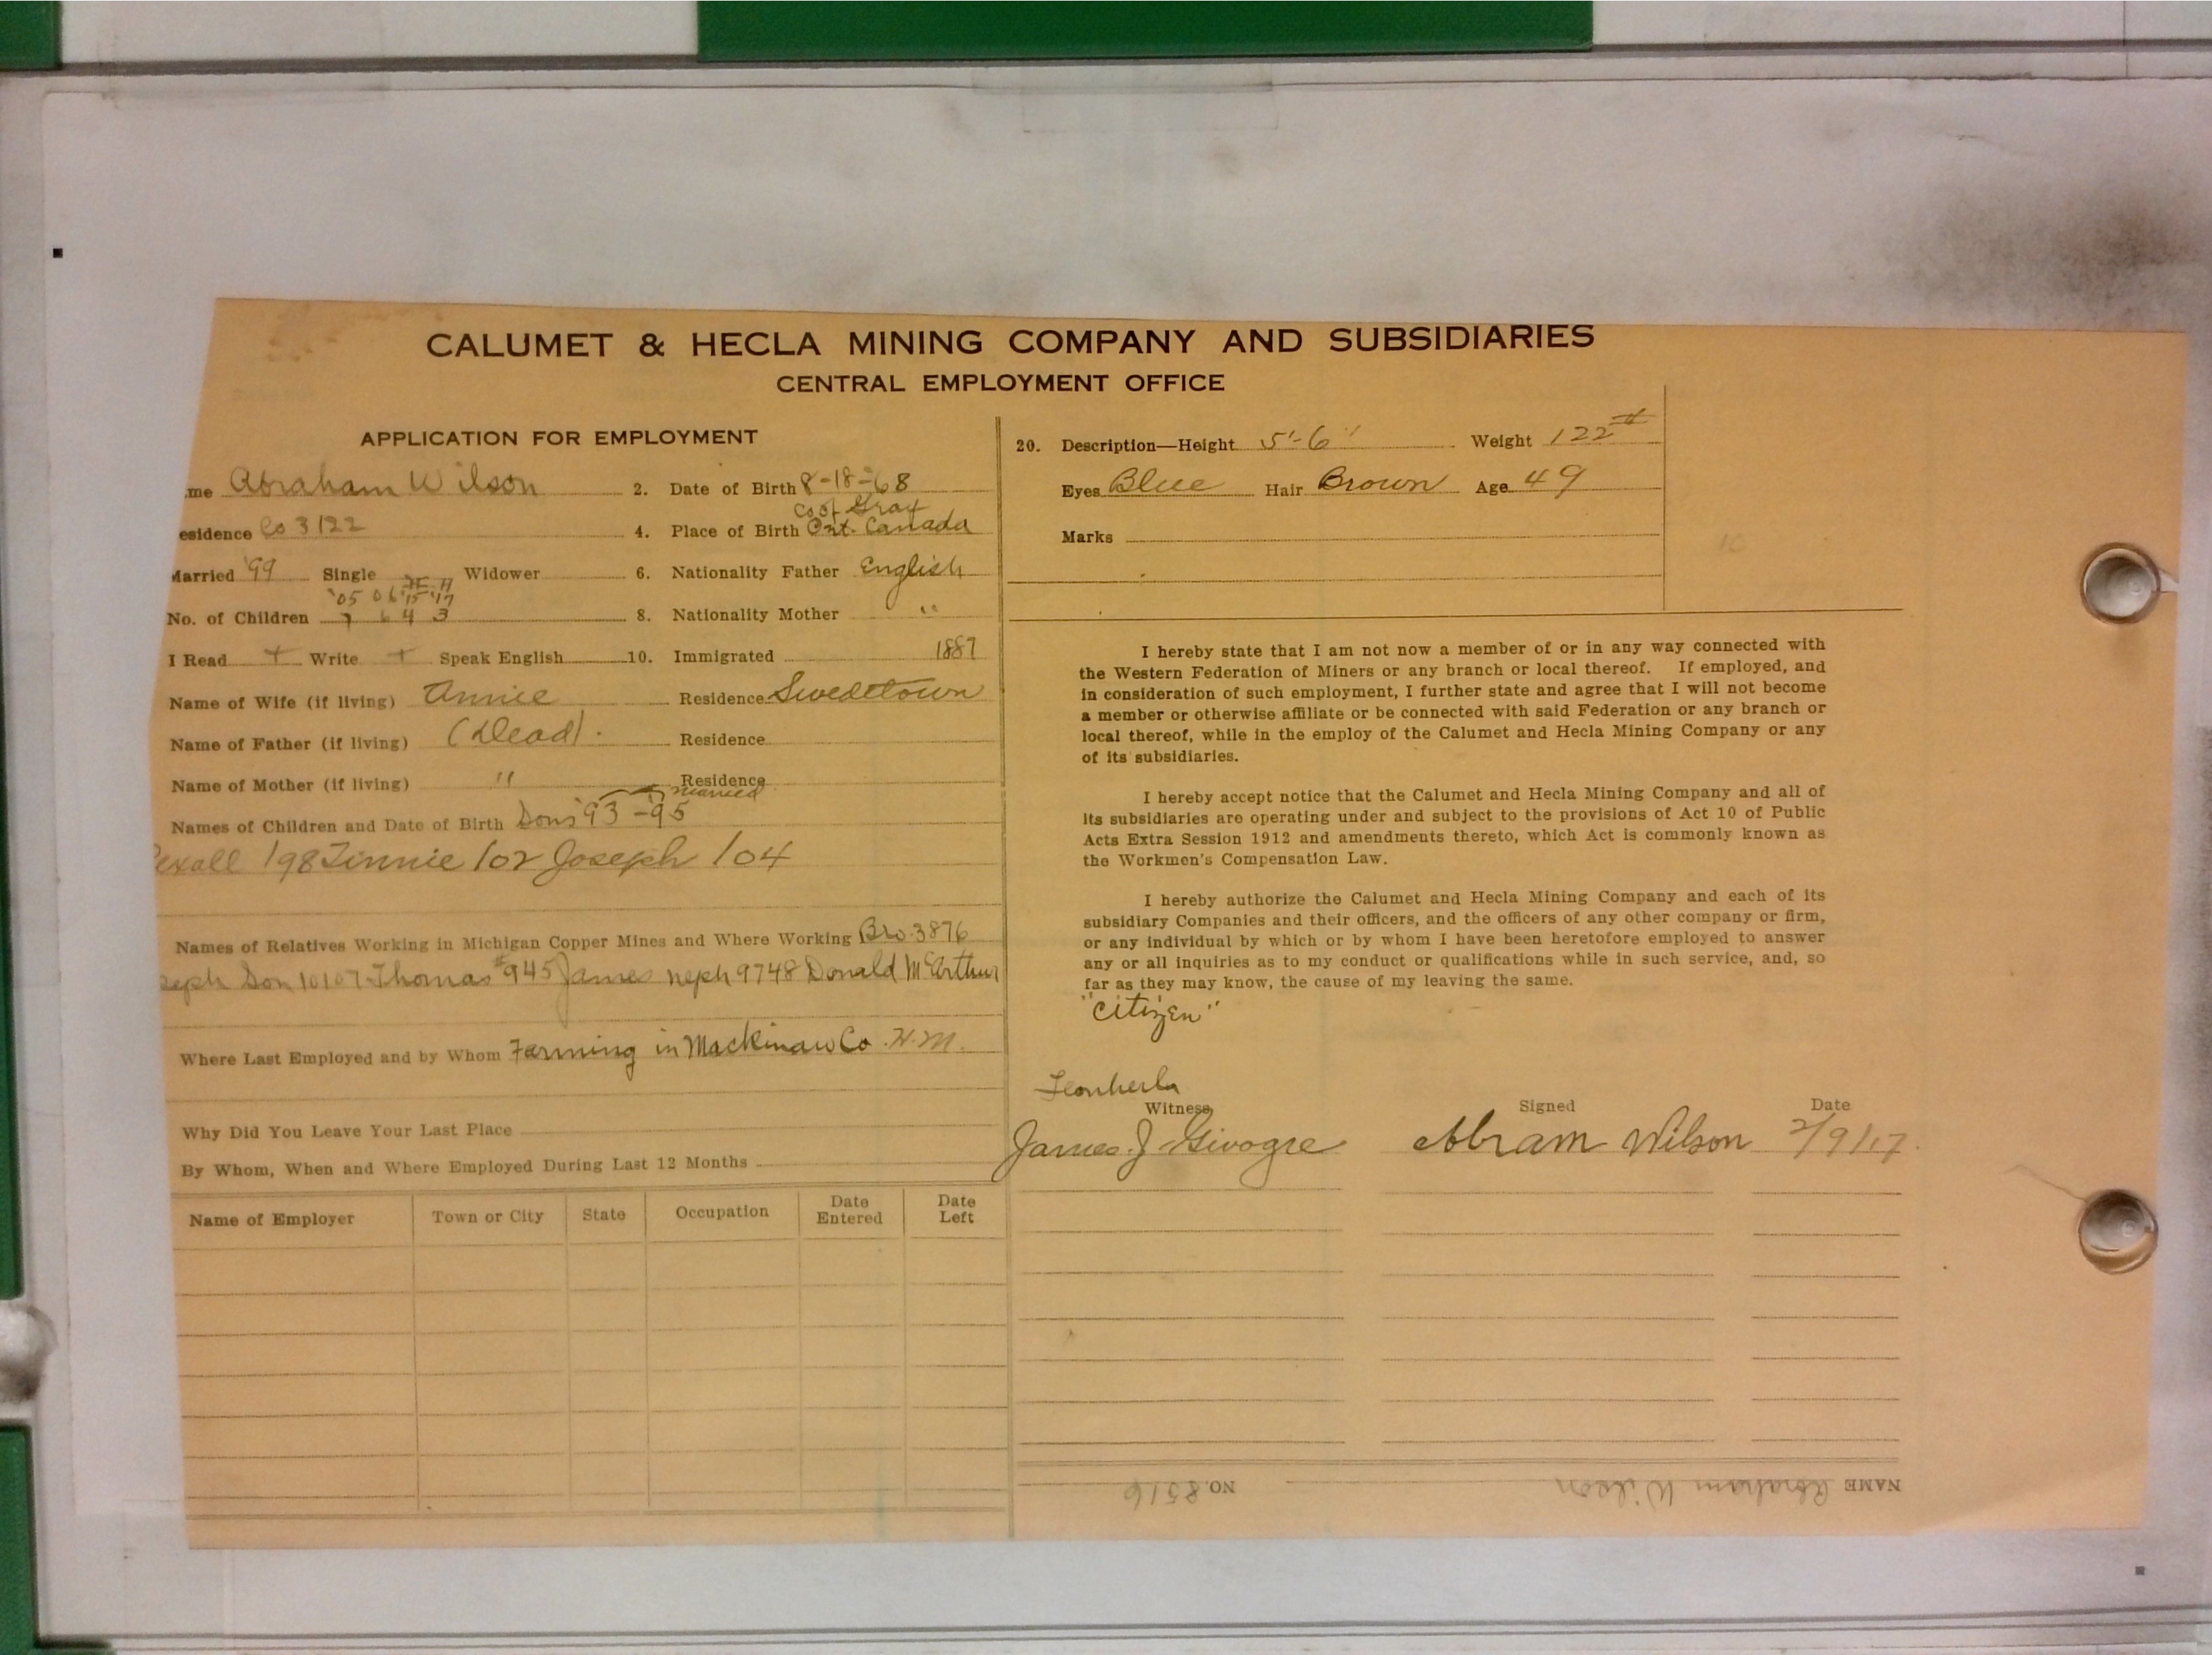 CALUMET & HECLA MINING COMPANY AND SUBSIDIARIES
CENTRAL EMPLOYMENT OFFICE
APPLICATION FOR EMPLOYMENT
me Abraham Wilson 2. Date of Birth 8-18-68
esidence Co 3122 4. Place of Birth Co of Gray Ont. Canada
Married '99 Single Widower 6. Nationality Father English
'05 06 '15 '17
No. of Children 7 6 4 3 8. Nationality Mother "
I Read + Write + Speak English 10. Immigrated 1887
Name of Wife (if living) Annie Residence Swedetown
Name of Father (if living) (Dead). Residence
Name of Mother (if living) " Residence
married
Names of Children and Date of Birth Sons '93 - '95
198 Tinnie 102 Joseph 104
Names of Relatives Working in Michigan Copper Mines and Where Working Bro. 3876
seph Son 10107 Thomas #945 James neph 9748 Donald McArthur
Where Last Employed and by Whom Farming in Mackinaw Co. H.M.
Why Did You Leave Your Last Place
By Whom, When and Where Employed During Last 12 Months
Name of Employer Town or City State Occupation Date Entered Date Left
20. Description—Height 5'-6" Weight 122#
Eyes Blue Hair Brown Age 49
Marks
I hereby state that I am not now a member of or in any way connected with
the Western Federation of Miners or any branch or local thereof. If employed, and
in consideration of such employment, I further state and agree that I will not become
a member or otherwise affiliate or be connected with said Federation or any branch or
local thereof, while in the employ of the Calumet and Hecla Mining Company or any
of its subsidiaries.
I hereby accept notice that the Calumet and Hecla Mining Company and all of
its subsidiaries are operating under and subject to the provisions of Act 10 of Public
Acts Extra Session 1912 and amendments thereto, which Act is commonly known as
the Workmen's Compensation Law.
I hereby authorize the Calumet and Hecla Mining Company and each of its
subsidiary Companies and their officers, and the officers of any other company or firm,
or any individual by which or by whom I have been heretofore employed to answer
any or all inquiries as to my conduct or qualifications while in such service, and, so
far as they may know, the cause of my leaving the same.
"Citizen"
Witness Signed Date
James. J Givogre Abram Wilson 2/9/17.
NAME Abraham Wilson NO. 8516